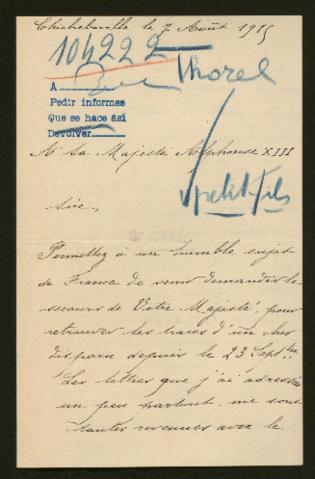 Chicheboville le 7 Août 1915
104222
Thorel
A
Pedir informes
Que se hace ási
Devolver
A Sa Majesté Alphonse XIII
petit-fils
Sire,
Permettez à un humble sujet
de France de venir demander le
secours de Votre Majesté, pour
retrouver les traces d'un cher
disparu depuis le 23 Septbre.
Les lettres que j'ai adressées
un peu partout me sont
toutes revenues avec le